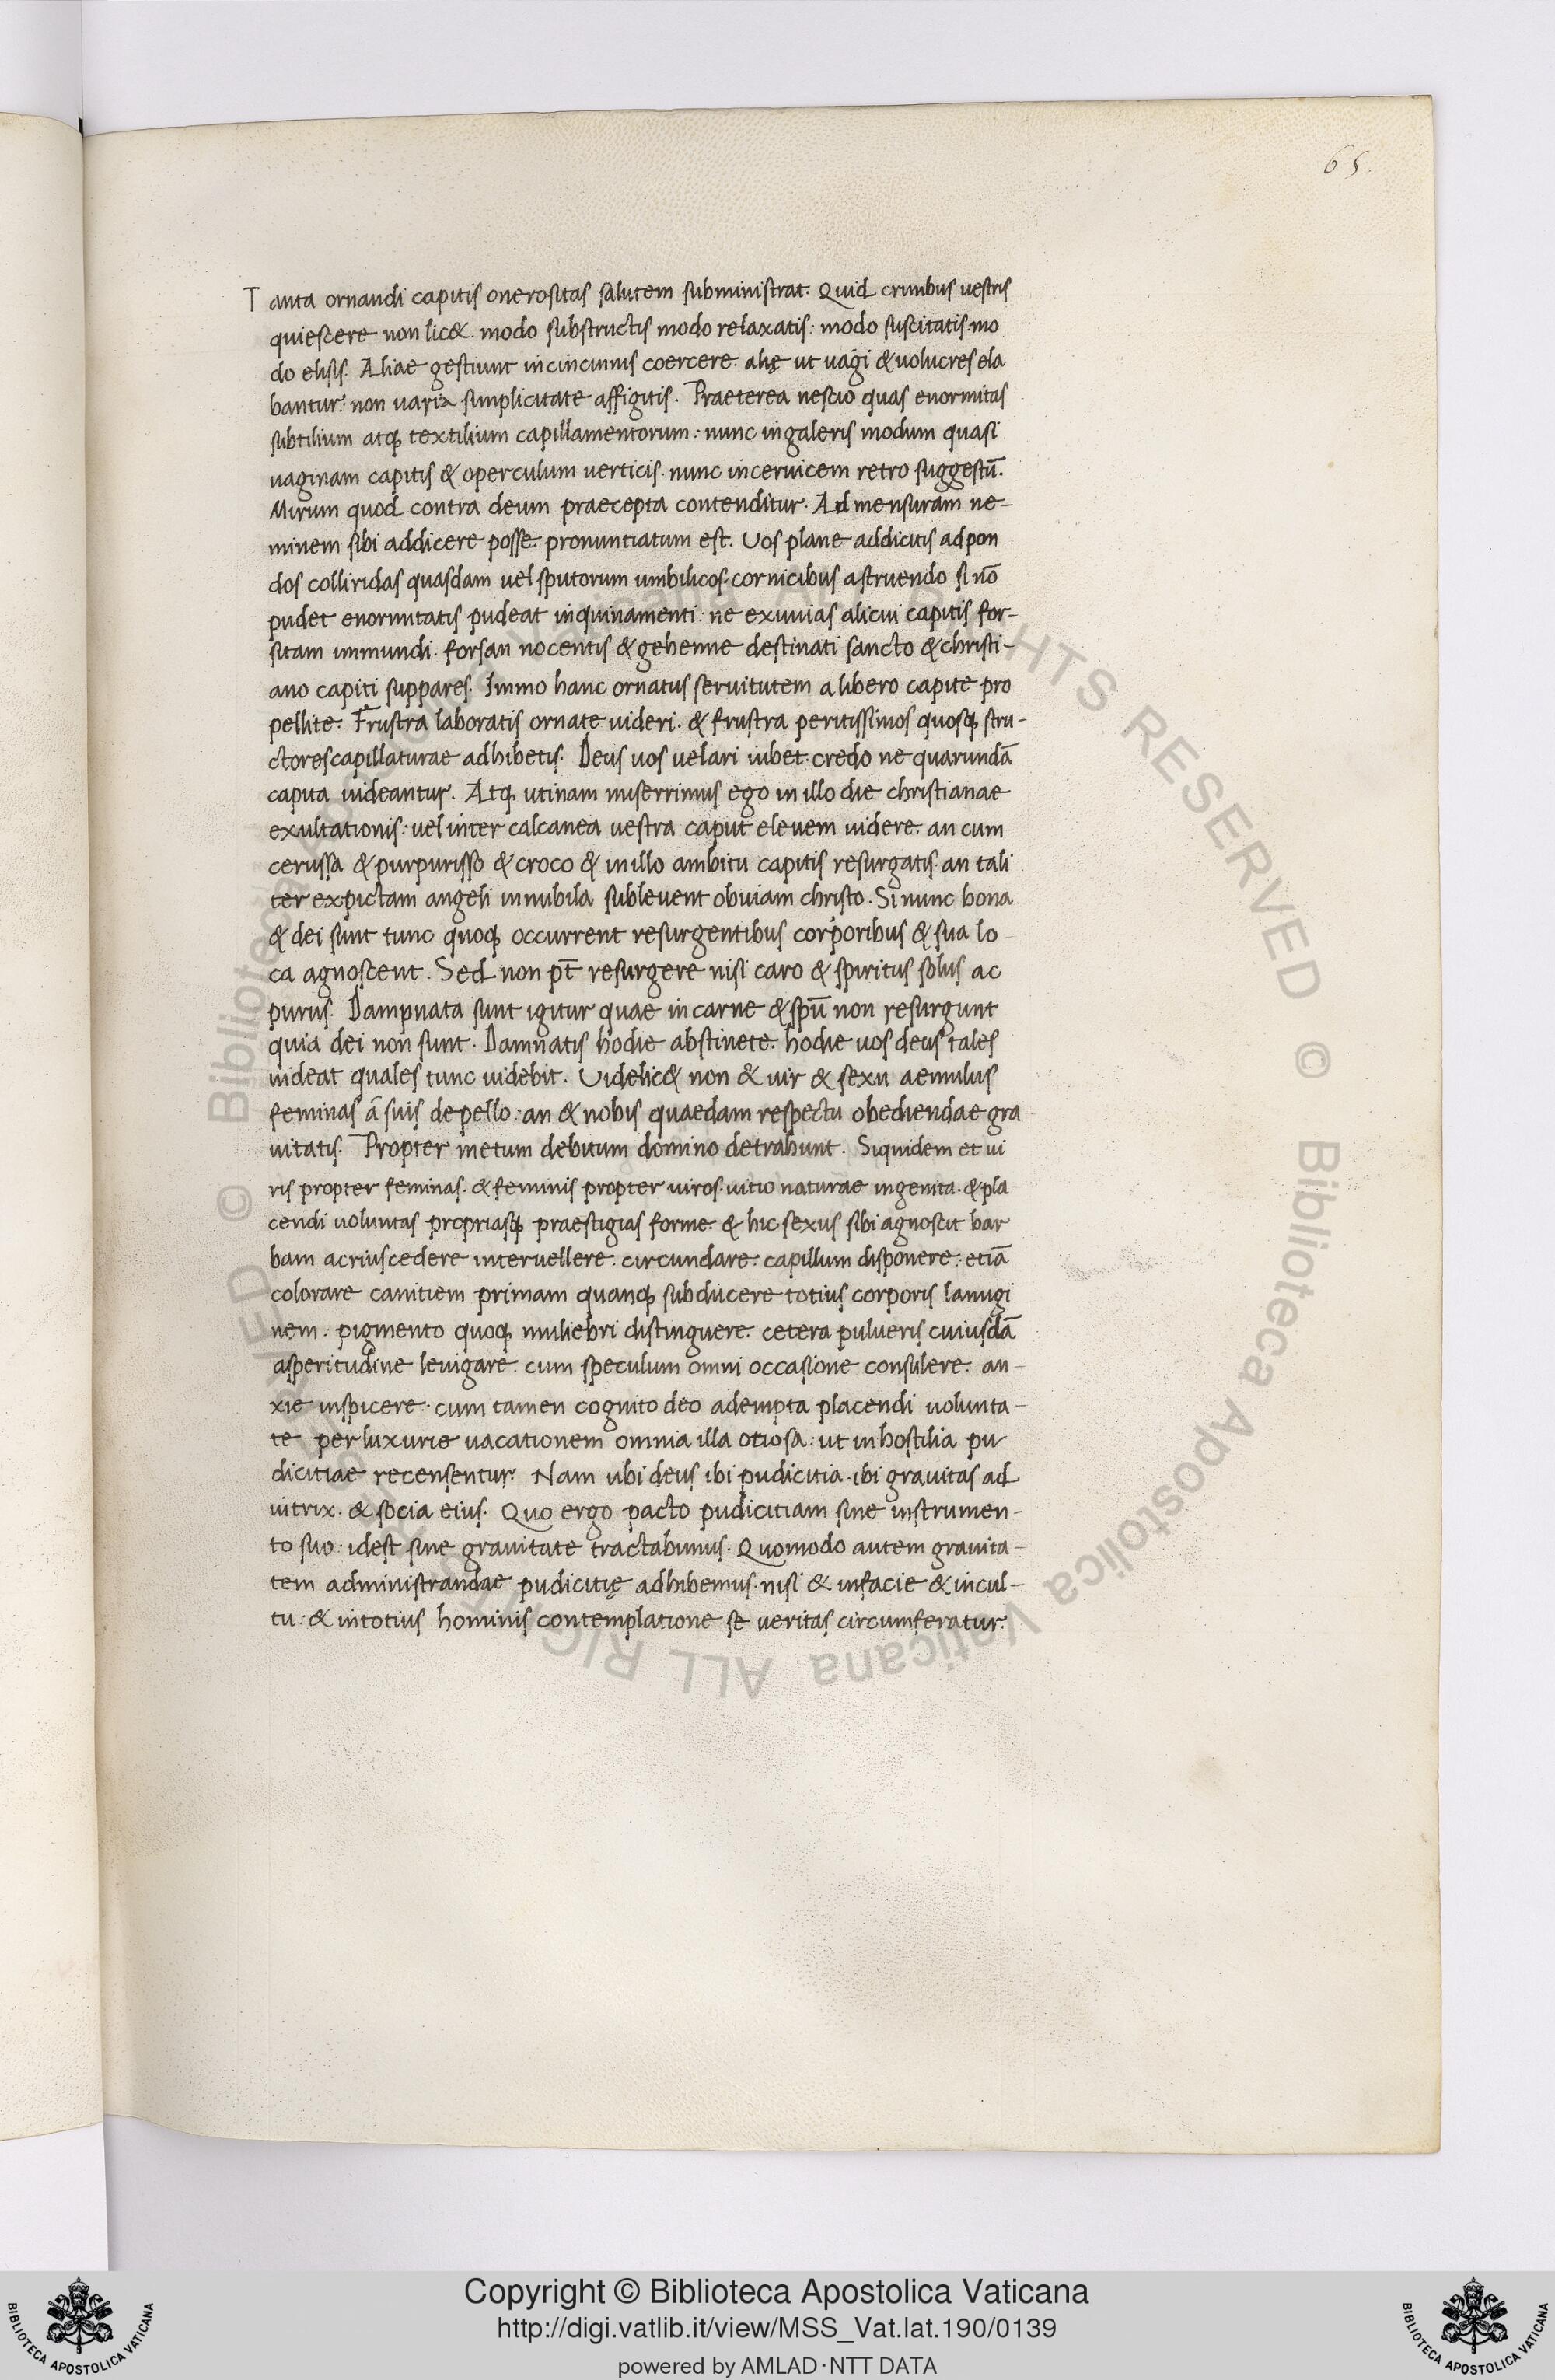 65.
Tanta ornandi capitis onerositas salutem subministrat. Quid crinibus uestris
quiescere non lic&. modo substructis modo relaxatis: modo suscitatis. mo
do elisis. Aliae gestiunt in cincinnis coercere. alię ut uagi & uolucres ela
bantur: non uaria simplicitate affigitis. Praeterea nescio quas enormitas
subtilium atq; textilium capillamentorum: nunc in galeris modum quasi
uaginam capitis & operculum uerticis. nunc in ceruicem retro suggestū.
Mirum quod contra deum praecepta contenditur. Ad mensuram ne-
minem sibi addicere posse. pronuntiatum est. Uos plane addicitis ad pon
dos colliridas quasdam uel sputorum umbilicos. cornicibus astruendo si nō
pudet enormitatis pudeat inquinamenti: ne exuuias alicui capitis for-
sitam immundi. forsan nocentis & gehenne destinati sancto & christi-
ano capiti suppares. Immo hanc ornatus seruitutem a libero capite pro
pellite. Frustra laboratis ornate uideri. & frustra peritissimos quosq; stru-
ctores capillaturae adhibetis. Deus uos uelari iubet. credo ne quarundā
capita uideantur. Atq; utinam miserrimus ego in illo die christianae
exultationis: uel inter calcanea uestra caput eleuem uidere. an cum
cerussa & purpurisso & croco & in illo ambitu capitis resurgatis. an tali
ter expictam angeli in nubila subleuent obuiam christo. Si nunc bona
& dei sunt tunc quoq; occurrent resurgentibus corporibus & sua lo-
ca agnoscent. Sed non pt̄ resurgere nisi caro & spiritus solus ac
purus. Dampnata sunt igitur quae in carne & spū non resurgunt
quia dei non sunt. Damnatis hodie abstinete. hodie uos deus tales
uideat quales tunc uidebit. Uidelic& non & uir & sexu aemulus
feminas a suis depello: an & nobis quaedam respectu obediendae gra
uitatis. Propter metum debitum domino detrahunt. Siquidem et ui
ris propter feminas. & feminis propter uiros. uitio naturae ingenita. & pla
cendi uoluntas propriasq; praestigias forme. & hic sexus sibi agnoscit bar
bam acrius cedere interuellere. circundare. capillum disponere. etiā
colorare canitiem primam quanq; subducere totius corporis lanugi
nem: pigmento quoq; muliebri distinguere. cetera pulueris cuiusdā
asperitudine leuigare. cum speculum omni occasione consulere. an-
xie inspicere. cum tamen cognito deo adempta placendi uolunta-
te per luxurie uacationem omnia illa otiosa: ut in hostilia pu
dicitiae recensentur. Nam ubi deus ibi pudicitia. ibi grauitas ad
iutrix. & socia eius. Quo ergo pacto pudicitiam sine instrumen-
to suo: idest sine grauitate tractabimus. Quomodo autem grauita-
tem administrandae pudicitię adhibemus. nisi & in facie & in cul-
tu: & in totius hominis contemplatione se ueritas circumferatur.
© Biblioteca Apostolica Vaticana ALL RIGHTS RESERVED © Biblioteca Apostolica Vaticana ALL RIGHTS RESERVED
Copyright © Biblioteca Apostolica Vaticana
http://digi.vatlib.it/view/MSS_Vat.lat.190/0139
powered by AMLAD·NTT DATA
BIBLIOTECA APOSTOLICA VATICANA
BIBLIOTECA APOSTOLICA VATICANA